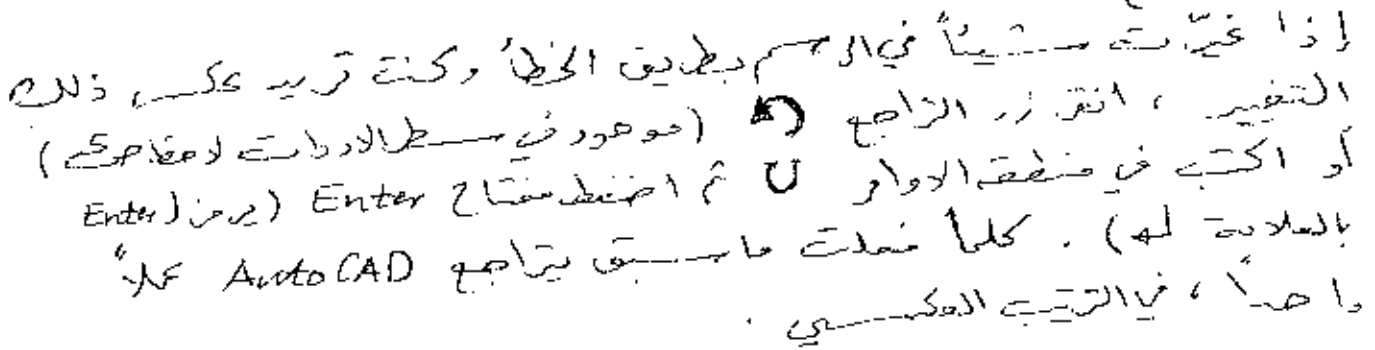 إذا غيّرت شيئاً في الرسم بطريق الخطأ وكنت تريد عكس ذلك
التغيير ، انقر زر التراجع (موجود في سطر الادوات
أو اكتب في منطقة الاوامر U ثم اضغط مفتاح Enter (يرمز لـ Enter
بالعلامة ↵) . كلما فعلت ما سبق يتراجع AutoCAD عملاً
واحداً ، في الترتيب العكسي .